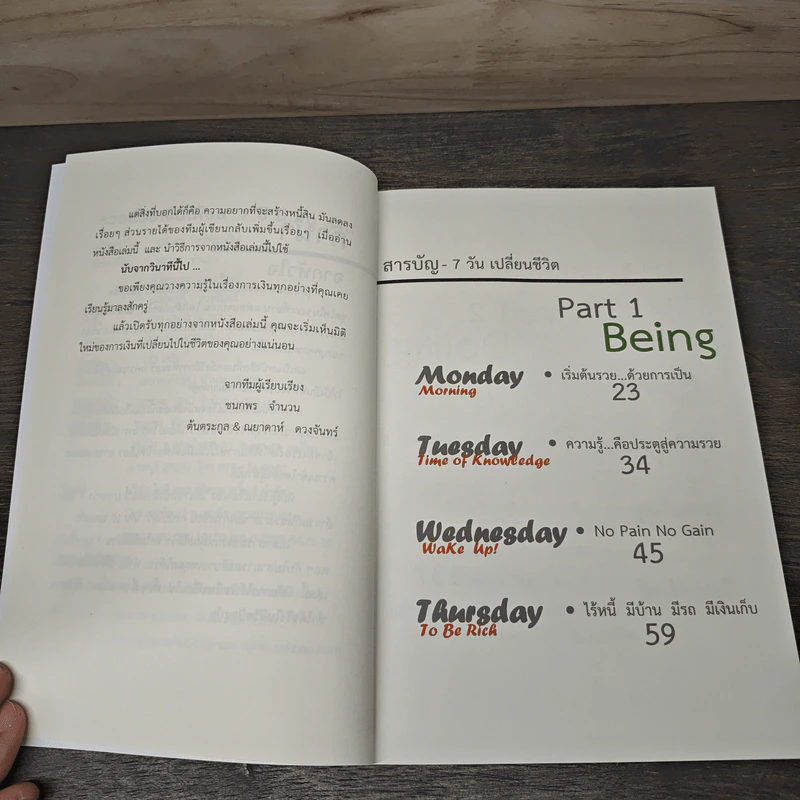 แต่สิ่งที่บอกได้ก็คือ ความอยากที่จะสร้างหนี้สิน มันลดลง
เรื่อยๆ ส่วนรายได้ของทีมผู้เขียนกลับเพิ่มขึ้นเรื่อยๆ เมื่ออ่าน
หนังสือเล่มนี้ และ นำวิธีการจากหนังสือเล่มนี้ไปใช้
นับจากวินาทีนี้ไป ...
ขอเพียงคุณวางความรู้ในเรื่องการเงินทุกอย่างที่คุณเคย
เรียนรู้มาลงสักครู่
แล้วเปิดรับทุกอย่างจากหนังสือเล่มนี้ คุณจะเริ่มเห็นมิติ
ใหม่ของการเงินที่เปลี่ยนไปในชีวิตของคุณอย่างแน่นอน
จากทีมผู้เรียบเรียง
ชนกพร จำนวน
ต้นตระกูล & ณยาดาห์ ดวงจันทร์
สารบัญ - 7 วัน เปลี่ยนชีวิต
Part 1
Being
Monday • เริ่มต้นรวย...ด้วยการเป็น
Morning 23
Tuesday • ความรู้...คือประตูสู่ความรวย
Time of Knowledge 34
Wednesday • No Pain No Gain
Wake Up! 45
Thursday • ไร้หนี้ มีบ้าน มีรถ มีเงินเก็บ
To Be Rich 59